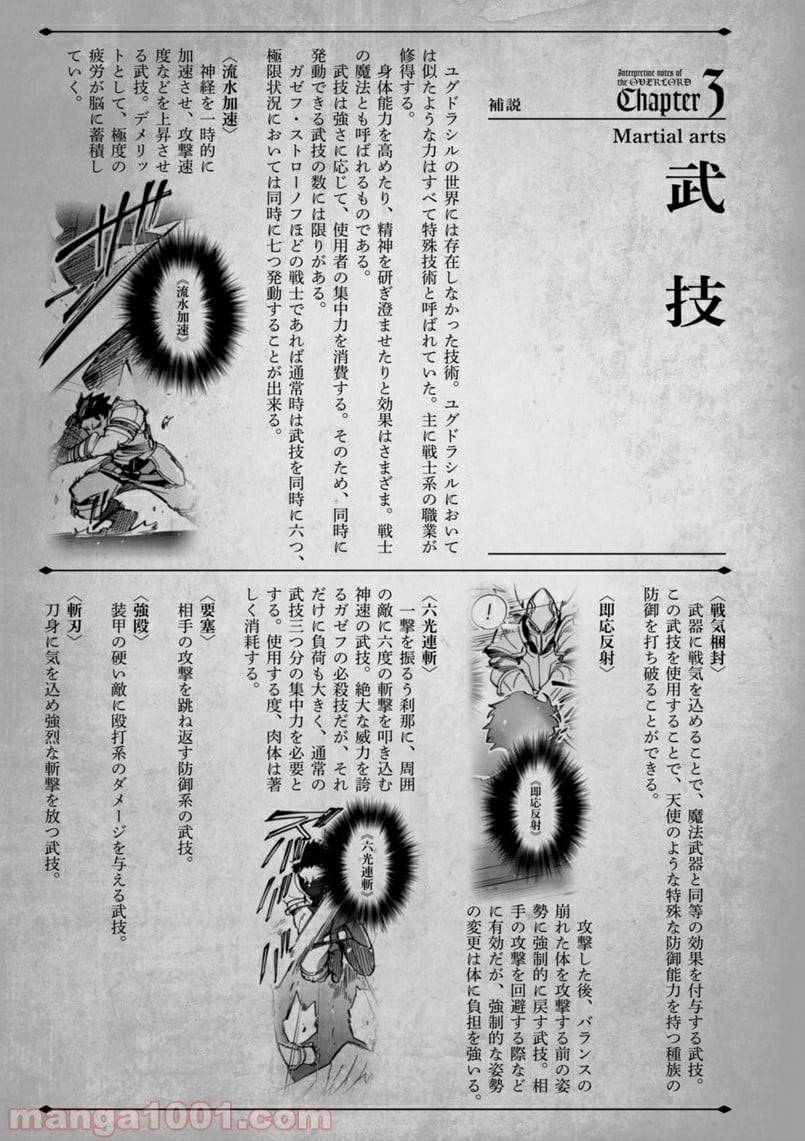 Interpretive notes of
the OVERLORD
Chapter 3
補説
Martial arts
武技
ユグドラシルの世界には存在しなかった技術。ユグドラシルにおいて
は似たような力はすべて特殊技術と呼ばれていた。主に戦士系の職業が
修得する。
身体能力を高めたり、精神を研ぎ澄ませたりと効果はさまざま。戦士
の魔法とも呼ばれるものである。
武技は強さに応じて、使用者の集中力を消費する。そのため、同時に
発動できる武技の数には限りがある。
ガゼフ・ストローノフほどの戦士であれば通常時は武技を同時に六つ、
極限状況においては同時に七つ発動することが出来る。
〈流水加速〉
神経を一時的に
加速させ、攻撃速
度などを上昇させ
る武技。デメリッ
トとして、極度の
疲労が脳に蓄積し
ていく。
《流水加速》
〈戦気梱封〉
武器に戦気を込めることで、魔法武器と同等の効果を付与する武技。
この武技を使用することで、天使のような特殊な防御能力を持つ種族の
防御を打ち破ることができる。
〈即応反射〉
！
《即応反射》
攻撃した後、バランスの
崩れた体を攻撃する前の姿
勢に強制的に戻す武技。相
手の攻撃を回避する際など
に有効だが、強制的な姿勢
の変更は体に負担を強いる。
〈六光連斬〉
一撃を振るう刹那に、周囲
の敵に六度の斬撃を叩き込む
神速の武技。絶大な威力を誇
るガゼフの必殺技だが、それ
だけに負荷も大きく、通常の
武技三つ分の集中力を必要と
する。使用する度、肉体は著
しく消耗する。
《六光連斬》
〈要塞〉
相手の攻撃を跳ね返す防御系の武技。
〈強殴〉
装甲の硬い敵に殴打系のダメージを与える武技。
〈斬刃〉
刀身に気を込め強烈な斬撃を放つ武技。
manga1001.com